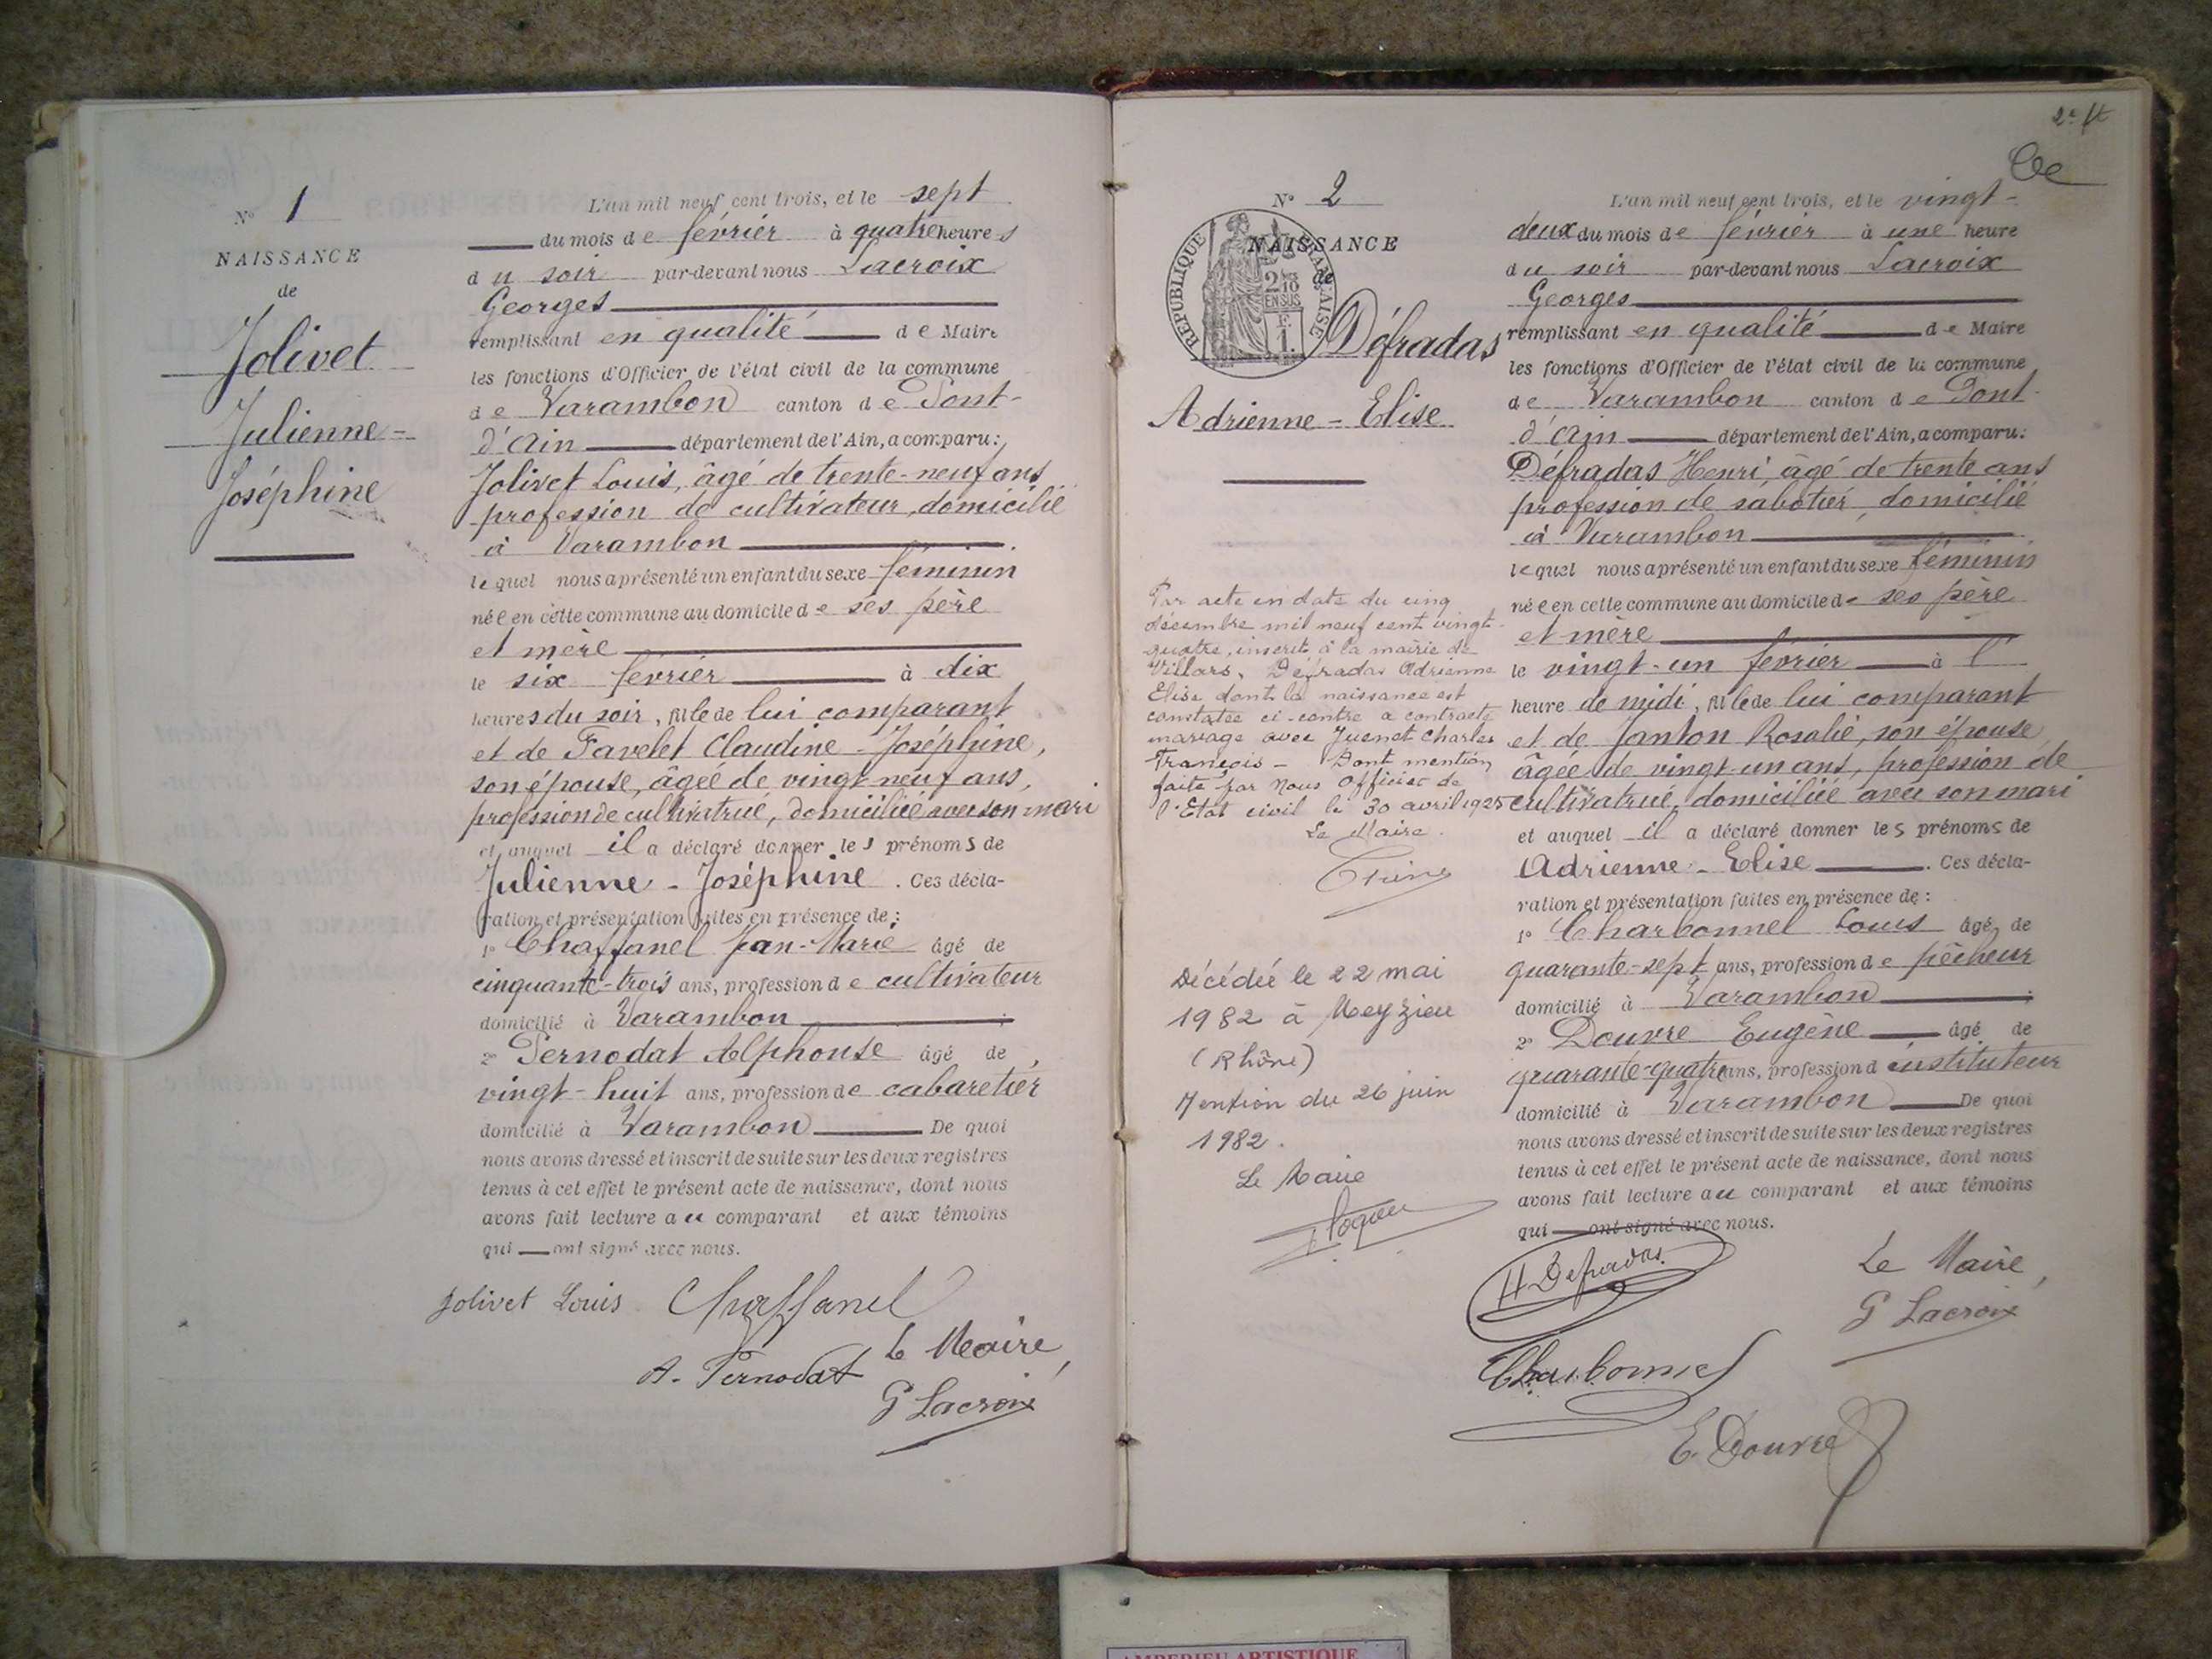 N° 1
NAISSANCE
de
Jolivet
Julienne-
Joséphine
L'an mil neuf cent trois, et le sept
du mois de février à quatre heures
du soir par-devant nous Lacroix
Georges
remplissant en qualité de Maire
les fonctions d'Officier de l'état civil de la commune
de Varambon canton de Pont-
d'Ain département de l'Ain, a comparu:
Jolivet Louis, âgé de trente-neuf ans
profession de cultivateur, domicilié
à Varambon
lequel nous a présenté un enfant du sexe féminin
née en cette commune au domicile de ses père
et mère
le six février à dix
heures du soir, fille de lui comparant
et de Favelet Claudine-Joséphine,
son épouse, âgée de vingt neuf ans,
profession de cultivatrice, domiciliée avec son mari
et auquel il a déclaré donner les prénoms de
Julienne-Joséphine. Ces décla-
ration et présentation faites en présence de:
1° Chaffanel Jean-Marie âgé de
cinquante-trois ans, profession de cultivateur
domicilié à Varambon
2° Pernodat Alphonse âgé de
vingt-huit ans, profession de cabaretier
domicilié à Varambon De quoi
nous avons dressé et inscrit de suite sur les deux registres
tenus à cet effet le présent acte de naissance, dont nous
avons fait lecture au comparant et aux témoins
qui ont signé avec nous.
Jolivet Louis Chaffanel
A. Pernodat Le Maire,
G Lacroix
N° 2
NAISSANCE
de
RÉPUBLIQUE FRANÇAISE
2/10
EN SUS
1 F.
Défradas
Adrienne-Elise
Par acte en date du cinq
décembre mil neuf cent vingt-
quatre, inscrit à la mairie de
Villars, Défradas Adrienne
Elise dont la naissance est
constatée ci-contre a contracté
mariage avec Juenet Charles
François - Dont mention
faite par Nous Officier de
l'Etat civil le 30 avril 1925
Le Maire.
Décédée le 22 mai
1982 à Meyzieu
(Rhône)
Mention du 26 juin
1982.
Le Maire
L'an mil neuf cent trois, et le vingt-
deux du mois de février à une heure
du soir par-devant nous Lacroix
Georges
remplissant en qualité de Maire
les fonctions d'Officier de l'état civil de la commune
de Varambon canton de Pont-
d'Ain département de l'Ain, a comparu:
Défradas Henri, âgé de trente ans
profession de sabotier, domicilié
à Varambon
lequel nous a présenté un enfant du sexe féminin
née en cette commune au domicile de ses père
et mère
le vingt-un février à l'
heure de midi, fille de lui comparant
et de Janton Rosalie, son épouse
âgée de vingt-un ans, profession de
cultivatrice, domiciliée avec son mari
et auquel il a déclaré donner les prénoms de
Adrienne-Elise. Ces décla-
ration et présentation faites en présence de:
1° Charbonnel Louis âgé de
quarante-sept ans, profession de pêcheur
domicilié à Varambon
2° Douvre Eugène âgé de
quarante-quatre ans, profession d'instituteur
domicilié à Varambon De quoi
nous avons dressé et inscrit de suite sur les deux registres
tenus à cet effet le présent acte de naissance, dont nous
avons fait lecture au comparant et aux témoins
qui ont signé avec nous.
H Defradas Le Maire,
G Lacroix
Charbonnel
E. Douvre
AMBERIEU ARTISTIQUE